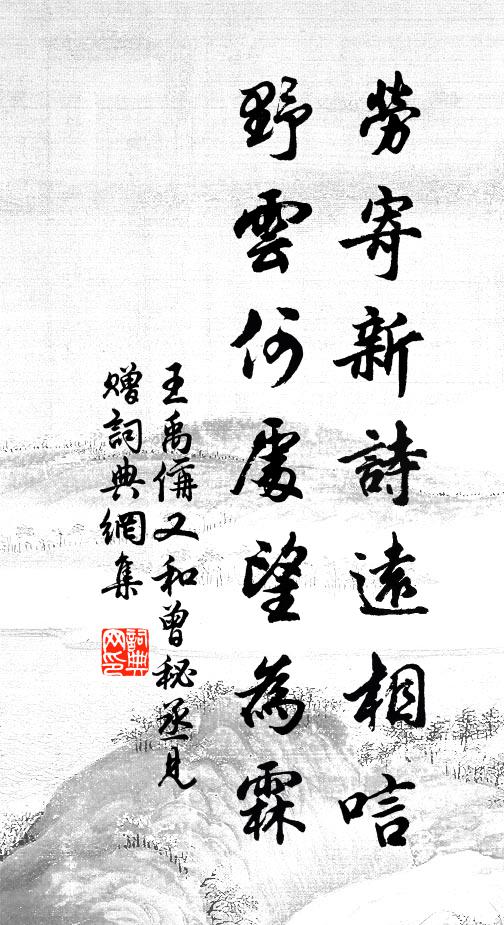 勞寄新詩遠相唁
野雲何處望為霖
王禹偁又和曾秘丞見
贈詞典網集
詞典网印